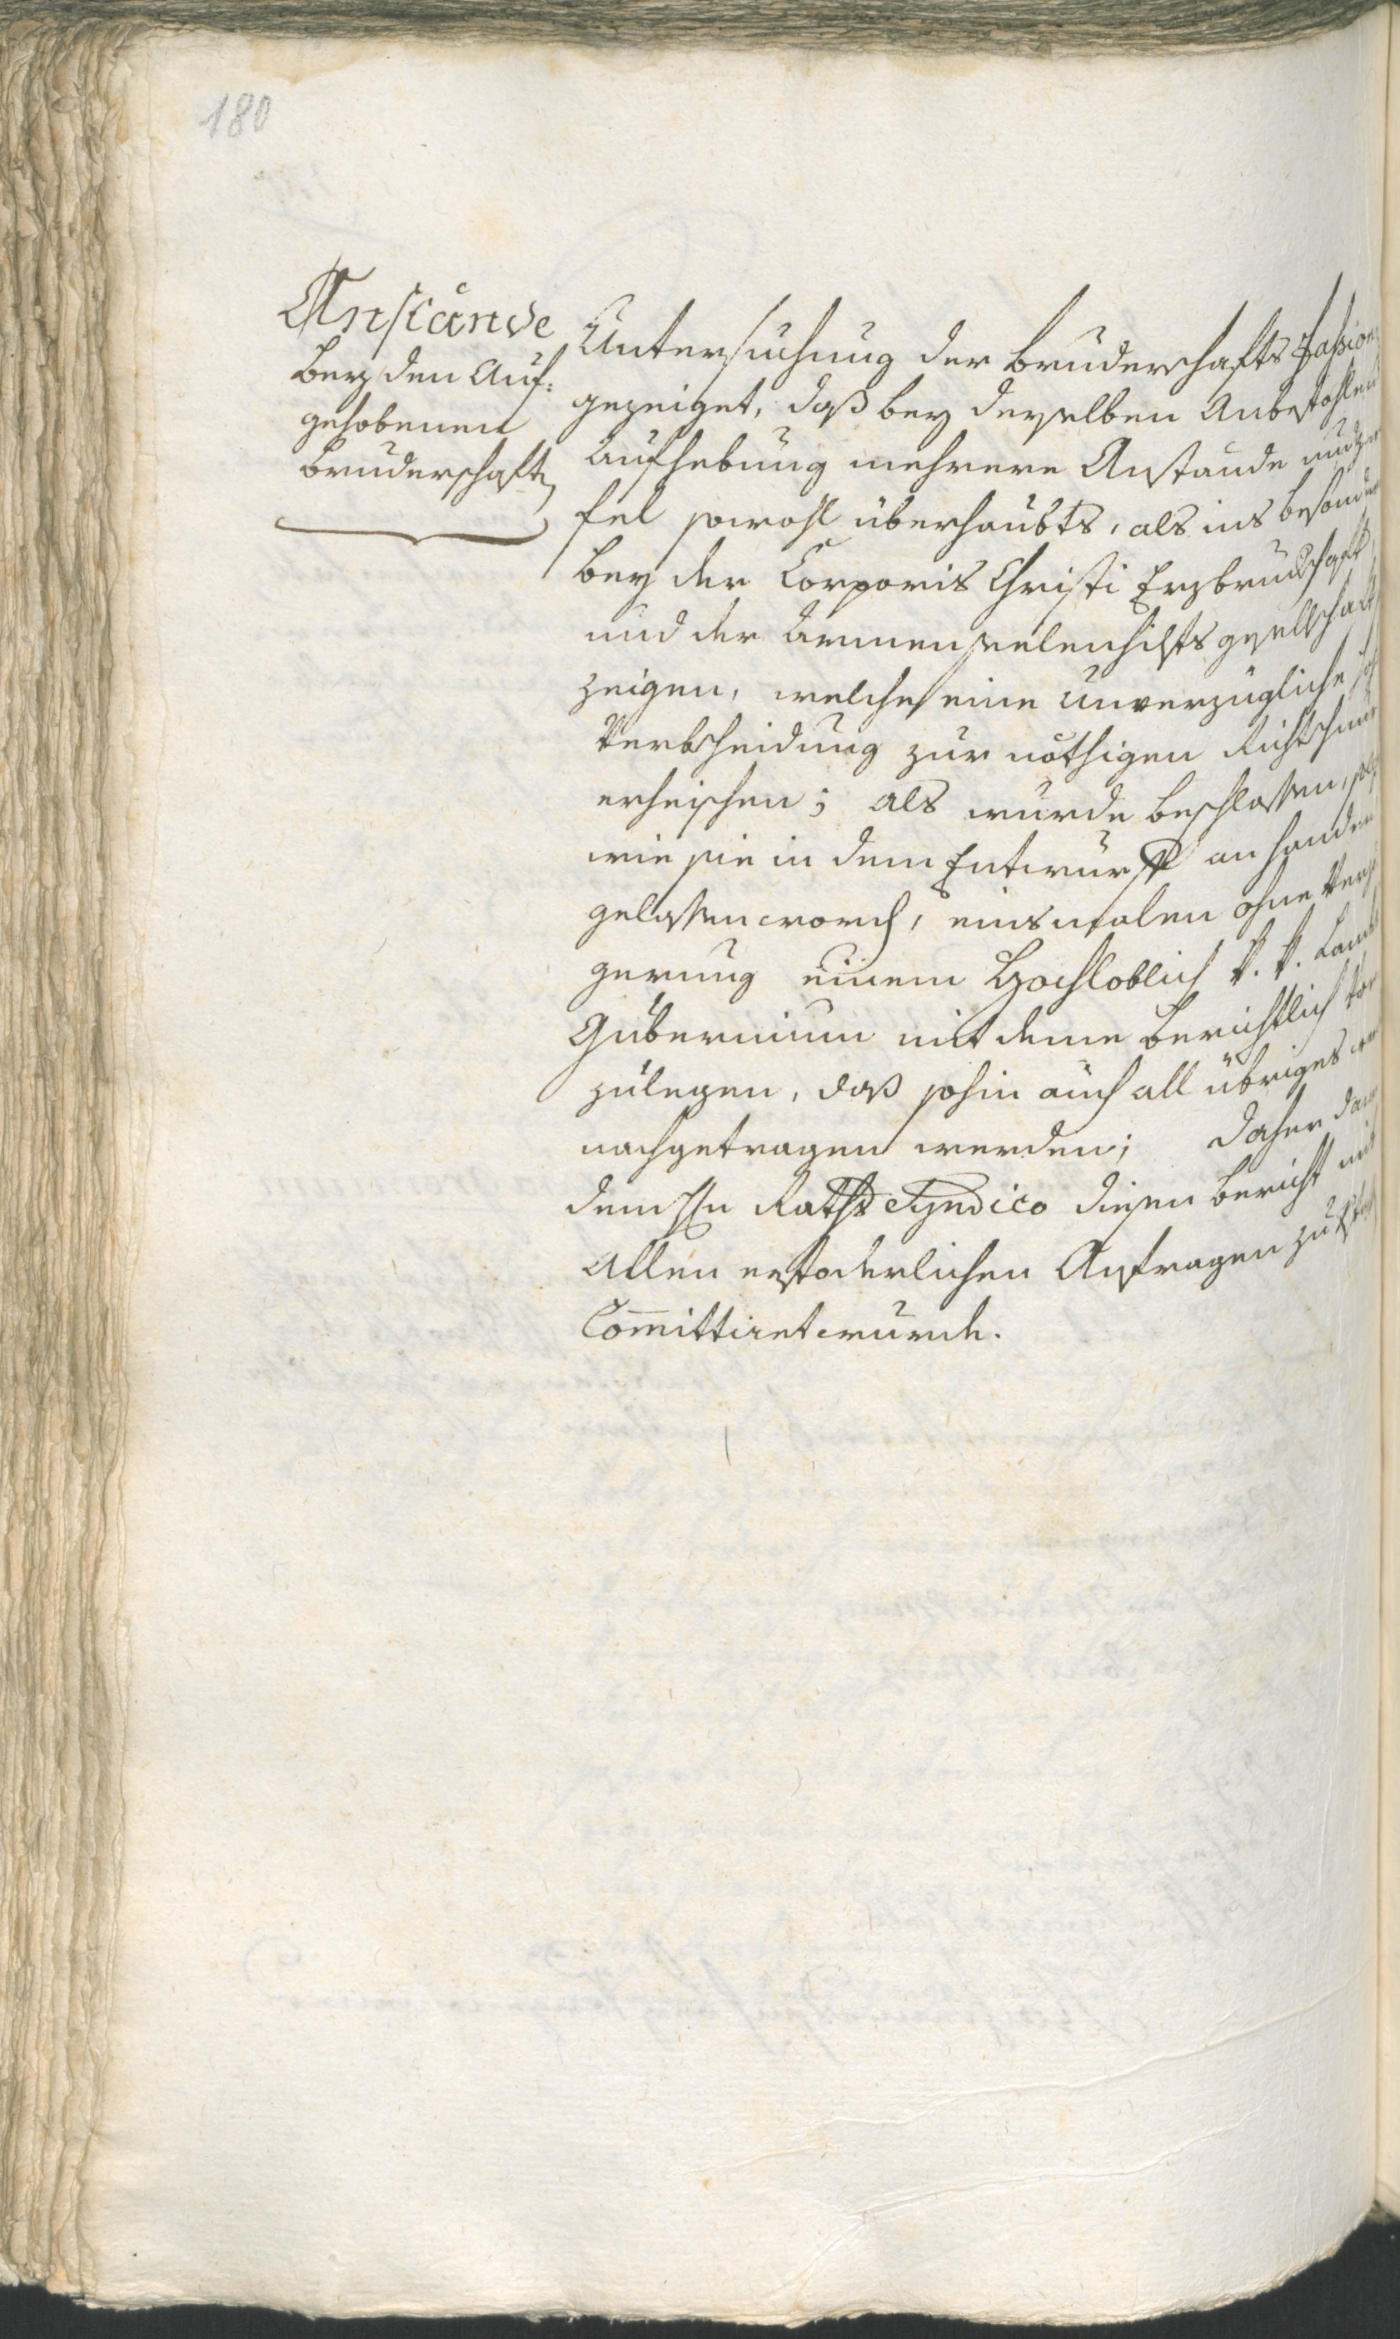 180
Anstände
bey den Auf¬
gehobenen
bruderschaft
Untersuchung der bruderschafts Fassion
gezeiget, daß bey derselben Anbefohlen
Aufhebung mehrere Anstände und Zwei
fel sowohl überhaubts, als ins besonder
bey der Corporis Christi Erzbruderschaft,
und der Armenseelenhilfs gesellschaft
zeigen, welche eine Unverzügliche
Verbscheidung zur nöthigen Richtschnur
erheischen; als wurde beschlossen,
wie sie in dem Entwurf an handen
gelassen word, einsmalen ohne Verzö
gerung einem Hochloblich k. k. Landes
Gubernium mit deme berichtlich vor
zulegen, daß sohin auch all übriges
nachgetragen werden; Daher dann
dem Hn Raths Syndico diesen bericht mit
allen erfoderlichen Anfragen
Committiret wurde.